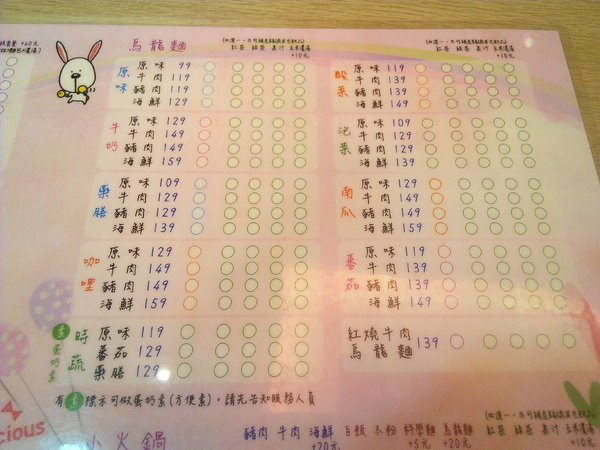 烏龍麵
紅茶 綠茶 果汁 玉米濃湯
+10元
原味
原味 99
牛肉 119
豬肉 119
海鮮 129
牛奶
原味 129
牛肉 149
豬肉 149
海鮮 159
藥膳
原味 109
牛肉 129
豬肉 129
海鮮 139
咖哩
原味 129
牛肉 149
豬肉 149
海鮮 159
素
蛋奶素
時蔬
原味 119
番茄 129
藥膳 129
紅茶 綠茶 果汁 玉米濃湯
+10元
酸菜
原味 119
牛肉 139
豬肉 139
海鮮 149
泡菜
原味 109
牛肉 129
豬肉 129
海鮮 139
南瓜
原味 129
牛肉 149
豬肉 149
海鮮 159
番茄
原味 119
牛肉 139
豬肉 139
海鮮 149
紅燒牛肉
烏龍麵 139
有素標示可做蛋奶素(方便素),請先告知服務人員
cious
小火鍋
豬肉 牛肉 海鮮 白飯 冬粉 科學麵 烏龍麵
+20元 +5元 +20元
紅茶 綠茶 果汁 玉米濃湯
+10元